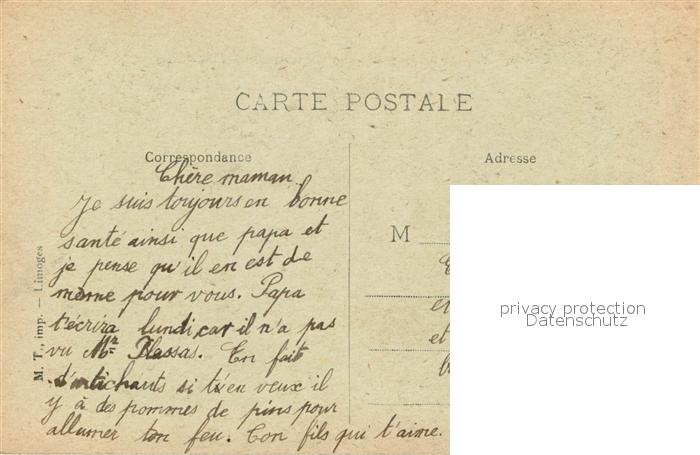 CARTE POSTALE
Correspondance
Adresse
Chère maman
Je suis toujours en bonne
santé ainsi que papa et
je pense qu'il en est de
même pour vous. Papa
t'écrira lundi car il n'a pas
vu Mr Plassas. En fait
d'artichauts si tu en veux il
y à des pommes de pins pour
allumer ton feu. Ton fils qui t'aime.
M
et
M. T., imp. — Limoges
privacy protection
Datenschutz